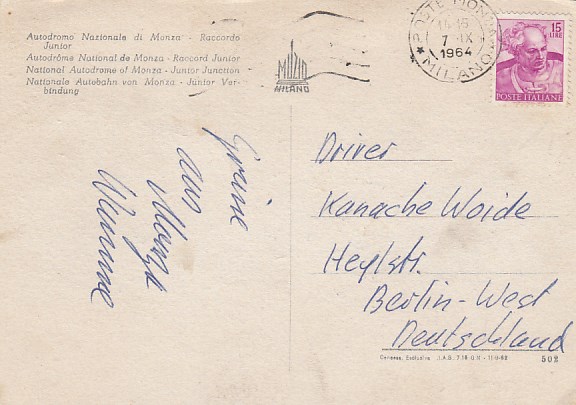 Autodromo Nazionale di Monza - Raccordo
Junior
Autodrôme National de Monza - Raccord Junior
National Autodrome of Monza - Junior Junction
Nationale Autobahn von Monza - Junior Ver-
bindung
MILANO
POSTE MONZA
7 -IX
1964
* MILANO *
15
LIRE
POSTE ITALIANE
Grüße
aus
Monza
Driver
Kanache Woide
Heylstr.
Berlin-West
Deutschland
502